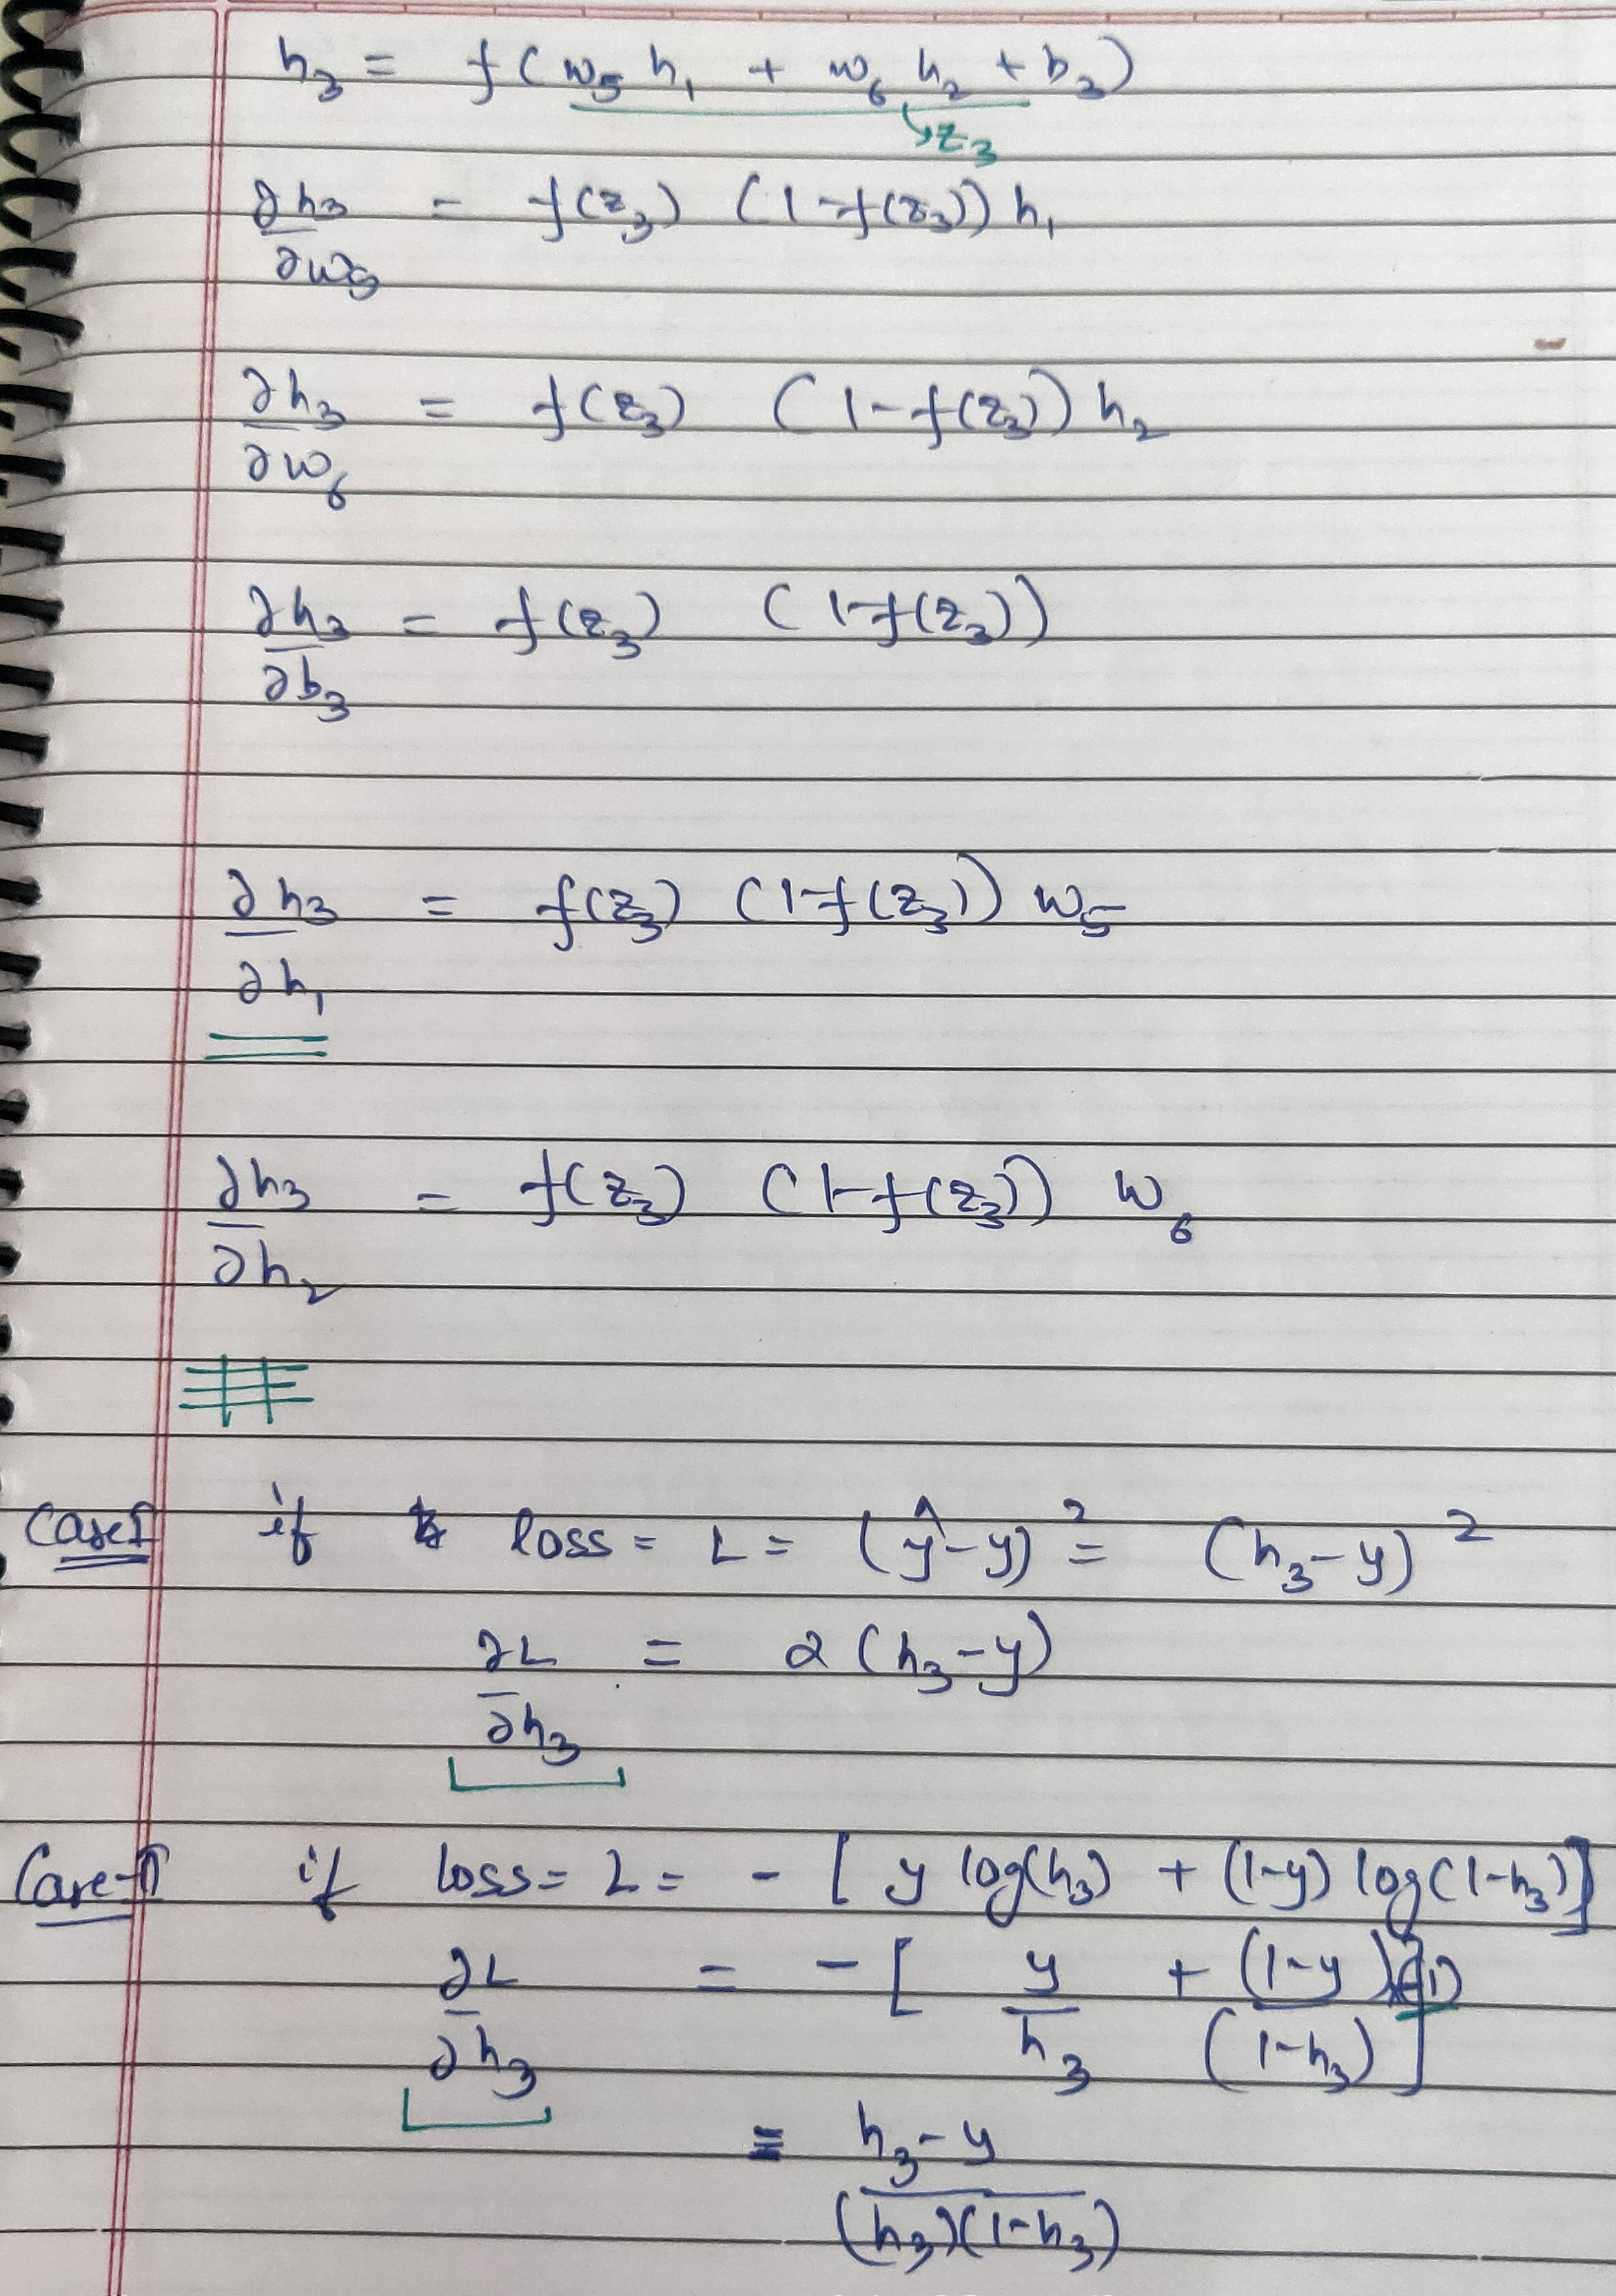 h₃ = f(w₅ h₁ + w₆ h₂ + b₃)
↳z₃
∂h₃/∂w₅ = f(z₃) (1-f(z₃)) h₁
∂h₃/∂w₆ = f(z₃) (1-f(z₃)) h₂
∂h₃/∂b₃ = f(z₃) (1-f(z₃))
∂h₃/∂h₁ = f(z₃) (1-f(z₃)) w₅
∂h₃/∂h₂ = f(z₃) (1-f(z₃)) w₆
Case I if loss = L = (ŷ-y)² = (h₃-y)²
∂L/∂h₃ = 2(h₃-y)
Case-II if loss = L = - [ y log(h₃) + (1-y) log(1-h₃)]
∂L/∂h₃ = - [ y/h₃ + (1-y)(-1)/(1-h₃) ]
= h₃-y/(h₃)(1-h₃)